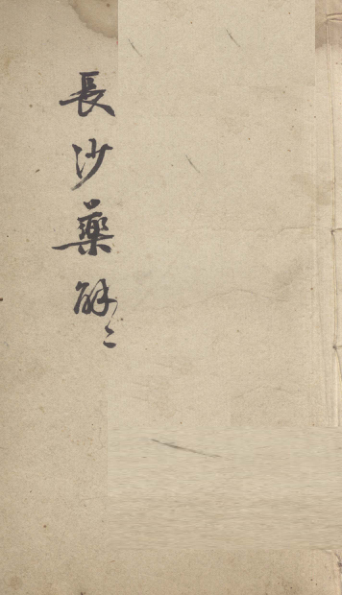 長沙藥解二